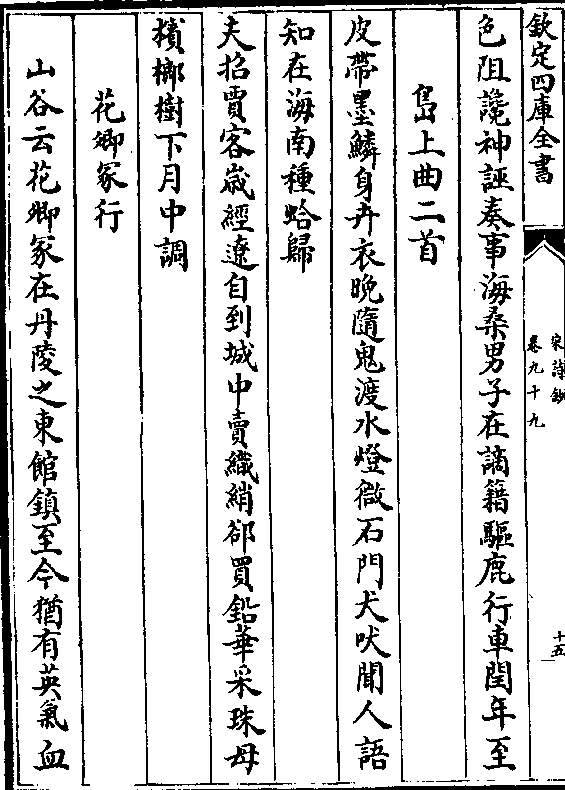 欽定四庫全書
宋詩鈔
卷九十九
十五
色阻讒神誣奏事海桑男子在謫籍驅鹿行車閏年至
島上曲二首
皮帶墨鱗身卉衣晚隨鬼渡水燈微石門犬吠聞人語
知在海南種蛤歸
夫招賈客嵗經遼自到城中賣織綃郤買鉛華采珠母
檳榔樹下月中調
花卿冢行
山谷云花卿冢在丹陵之東館鎮至今猶有英氣血